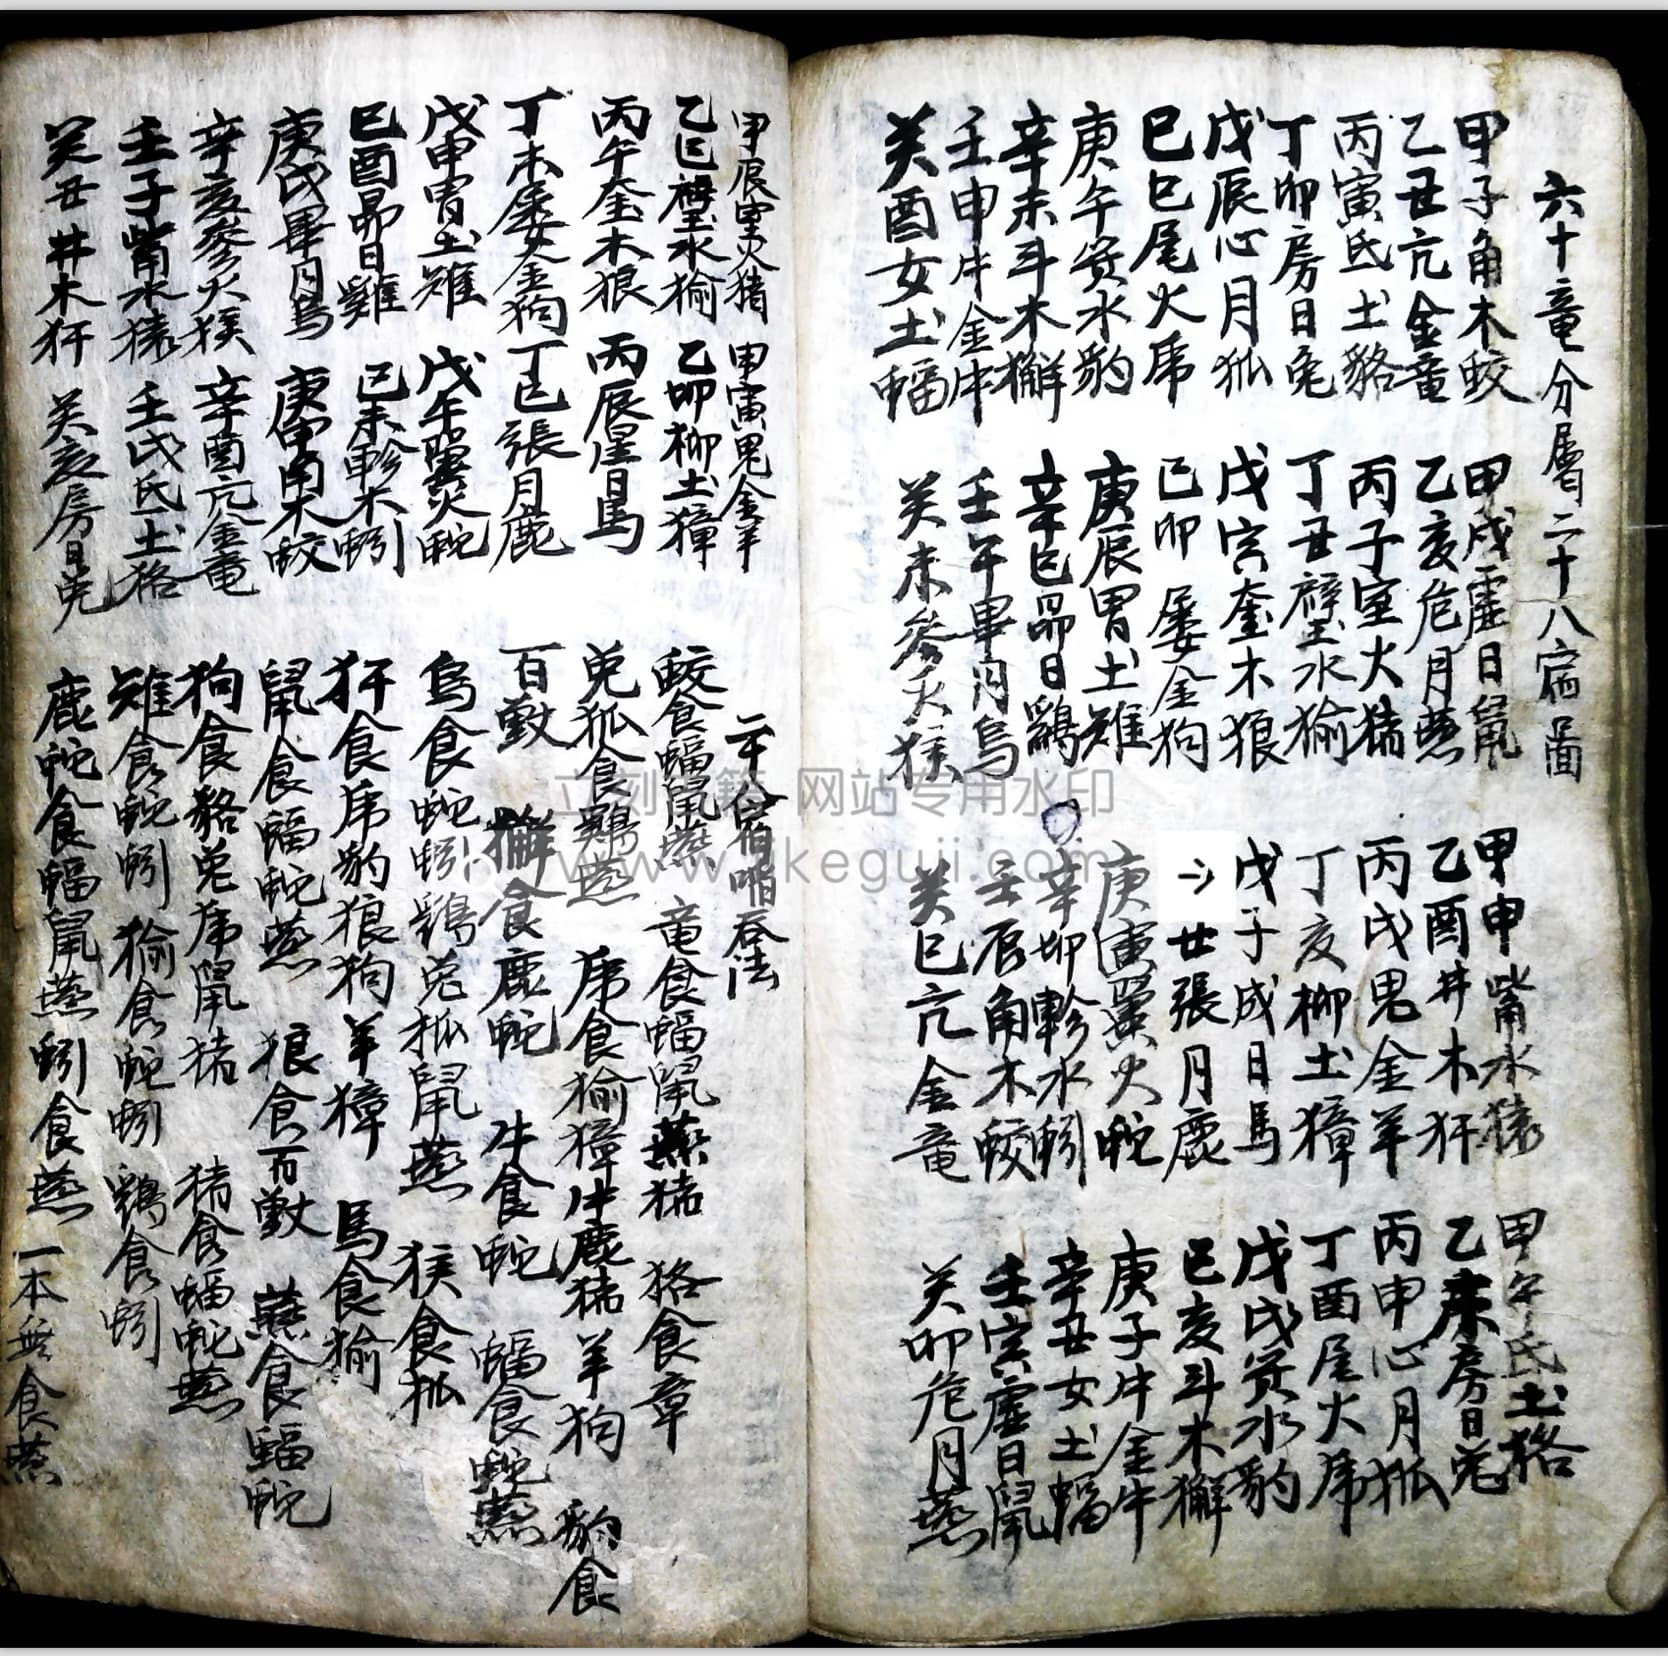 六十竜分層二十八宿圖
甲子角木蛟 甲戌虛日鼠 甲申觜水猿 甲午氐土狢
乙丑亢金竜 乙亥危月燕 乙酉井木犴 乙未房日兎
丙寅氐土貉 丙子室火猪 丙戌鬼金羊 丙申心月狐
丁卯房日兎 丁丑壁水㺄 丁亥柳土獐 丁酉尾火虎
戊辰心月狐 戊寅奎木狼 戊子成日馬 戊戌箕水豹
巳巳尾火虎 己卯婁金狗 丑張月鹿 已亥斗木獬
庚午箕水豹 庚辰胃土雉 庚寅翼火蛇 庚子牛金牛
辛未斗木獬 辛巳昴日鷄 辛卯軫水蚓 辛丑女土蝠
壬申牛金牛 壬午畢月烏 壬辰角木蛟 壬寅虛日鼠
癸酉女土蝠 癸未參火猴 癸巳亢金竜 癸卯危月燕
甲辰室火猪 甲寅鬼金羊
乙巳壁水㺄 乙卯柳土獐
丙午奎木狼 丙辰星日馬
丁未婁金狗 丁巳張月鹿
戊申胃土雉 戊午翼火蛇
已酉昴日雞 已未軫木蚓
庚戌畢月烏 庚申角木蛟
辛亥參火猴 辛酉亢金竜
壬子觜水猿 壬戌氐土狢
癸丑井木犴 癸亥房日兎
二十八宿啗吞法
蛟食蝠鼠燕 竜食蝠鼠燕猪 狢食章
兎狐食鷄燕 虎食㺄獐牛鹿猪羊狗 豹食
百獸 獬食鹿蛇 牛食蛇 蝠食蛇燕
烏食蛇蚓鷄兎狐鼠燕 猴食狐
犴食虎豹狼狗羊獐 馬食㺄
鼠食蝠蛇燕 狼食百獸 燕食蝠蛇
狗食貉兎虎鼠猪 猪食蝠蛇燕
雉食蛇蚓 㺄食蛇蚓 鷄食蚓
鹿蛇食蝠鼠燕 蚓食燕 一本無食燕
立刻 籍 网站专用水印
www. keguji.com